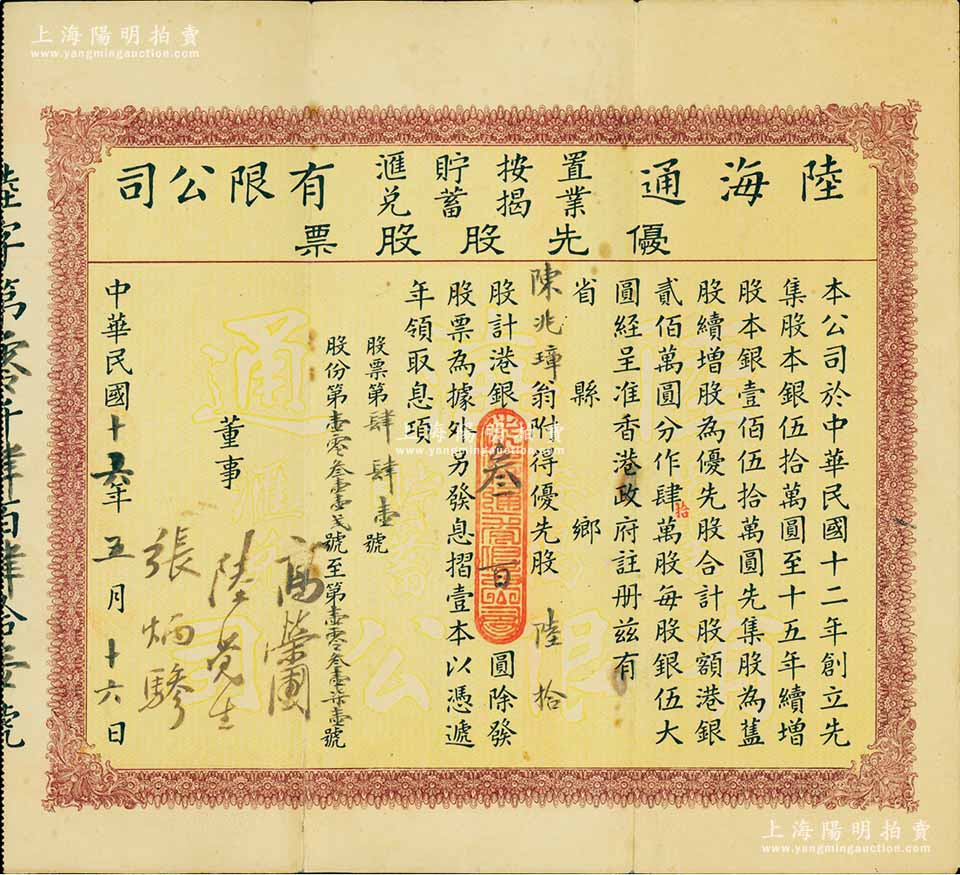 上海陽明拍賣
www.yangmingauction.com
陸海通置業按揭貯蓄滙兌有限公司
優先股股票
本公司於中華民國十二年創立先
集股本銀伍拾萬圓至十五年續增
股本銀壹佰伍拾萬圓先集股為舊
股續增股為優先股合計股額港銀
貳佰萬圓分作肆拾萬股每股銀伍大
圓經呈准香港政府註册茲有
省 縣 鄉
陳兆璋翁附得優先股 陸拾
股計港銀 叁百 圓除發
股票為據外另發息摺壹本以憑遞
年領取息項
股票第肆肆壹號
股份第壹零叁壹弍號至第壹零叁柒壹號
董事
高榮圃
陸覺生
張炳驂
中華民國十六年五月十六日
陸字第零零仟肆百肆拾壹號
上海陽明拍賣
www.yangmingauction.com
上海陽明拍賣
www.yangmingauction.com